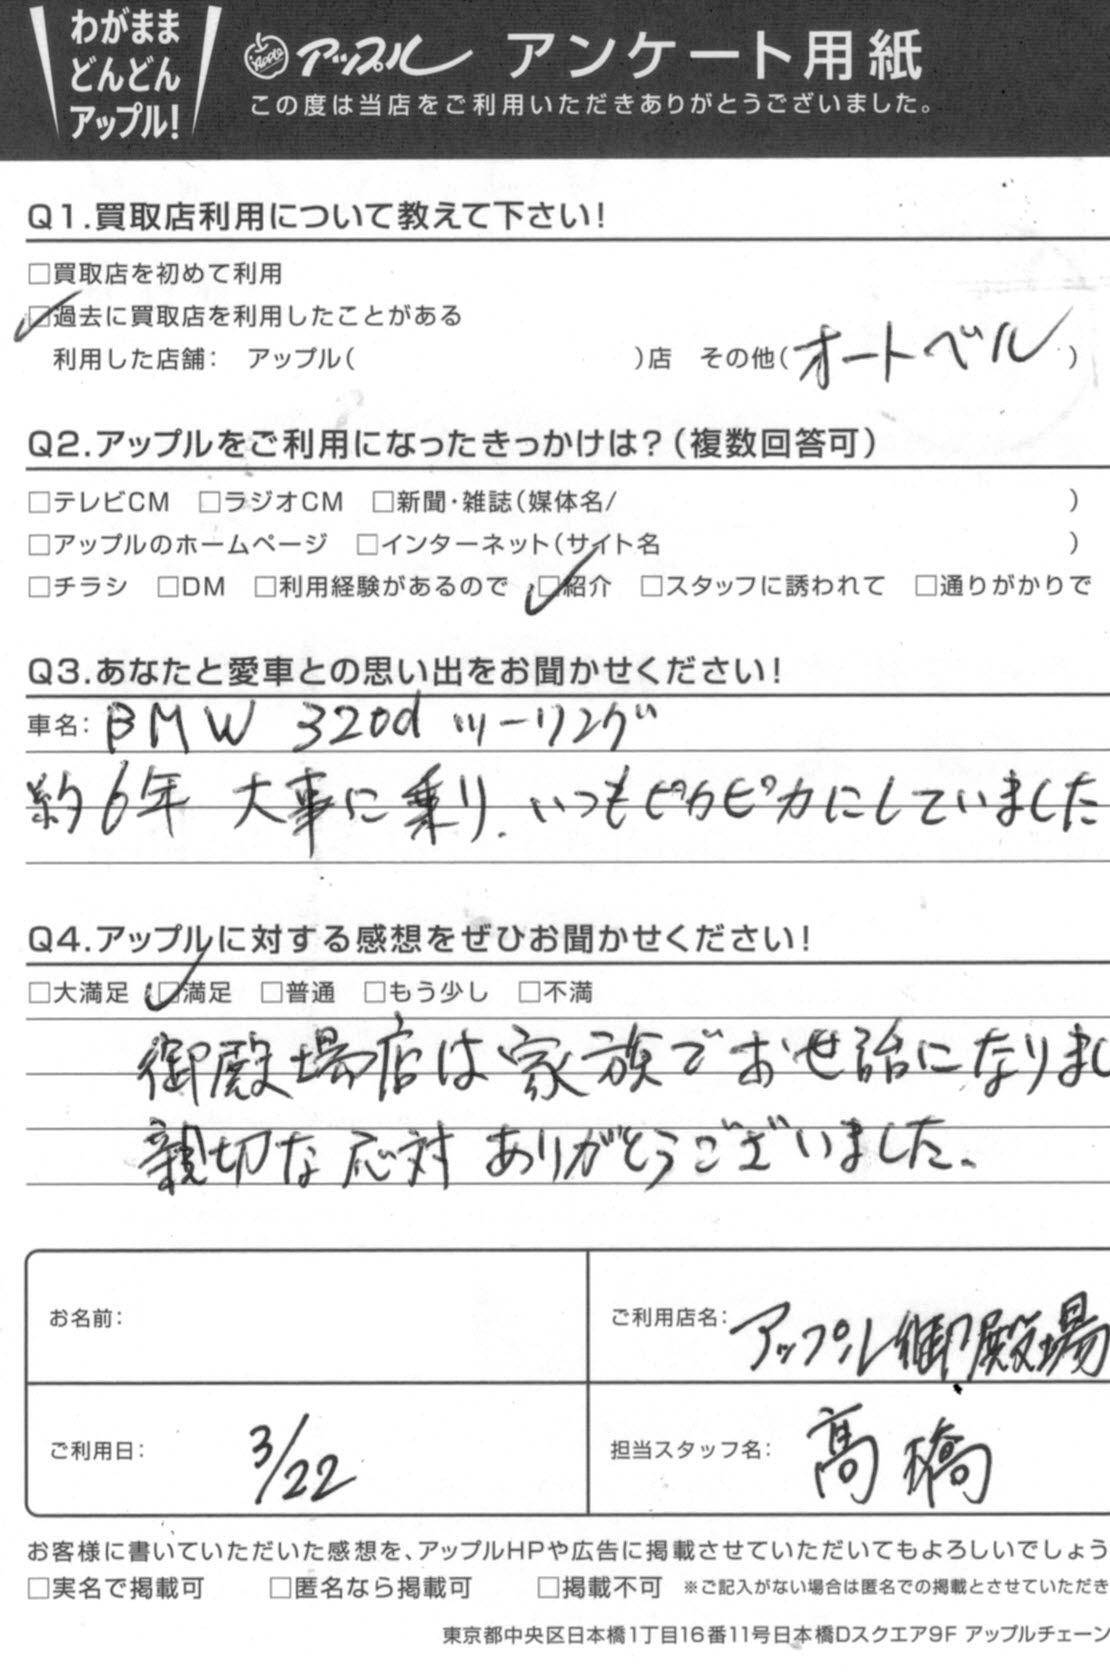 わがまま
どんどん
アップル!
Apple アップル アンケート用紙
この度は当店をご利用いただきありがとうございました。
Q1.買取店利用について教えて下さい!
□買取店を初めて利用
☑過去に買取店を利用したことがある
利用した店舗: アップル( )店 その他(オートベル)
Q2.アップルをご利用になったきっかけは?(複数回答可)
□テレビCM □ラジオCM □新聞・雑誌(媒体名/ )
□アップルのホームページ □インターネット(サイト名 )
□チラシ □DM □利用経験があるので ☑紹介 □スタッフに誘われて □通りがかりで
Q3.あなたと愛車との思い出をお聞かせください!
車名: BMW 320d ツーリング
約6年 大事に乗り、いつもピカピカにしていました
Q4.アップルに対する感想をぜひお聞かせください!
□大満足 ☑満足 □普通 □もう少し □不満
御殿場店は家族でお世話になりまし
親切な応対 ありがとうございました、
お名前:
ご利用店名: アップル御殿場
ご利用日: 3/22
担当スタッフ名: 髙橋
お客様に書いていただいた感想を、アップルHPや広告に掲載させていただいてもよろしいでしょう
□実名で掲載可 □匿名なら掲載可 □掲載不可 ※ご記入がない場合は匿名での掲載とさせていただき
東京都中央区日本橋1丁目16番11号日本橋Dスクエア9F アップルチェーン